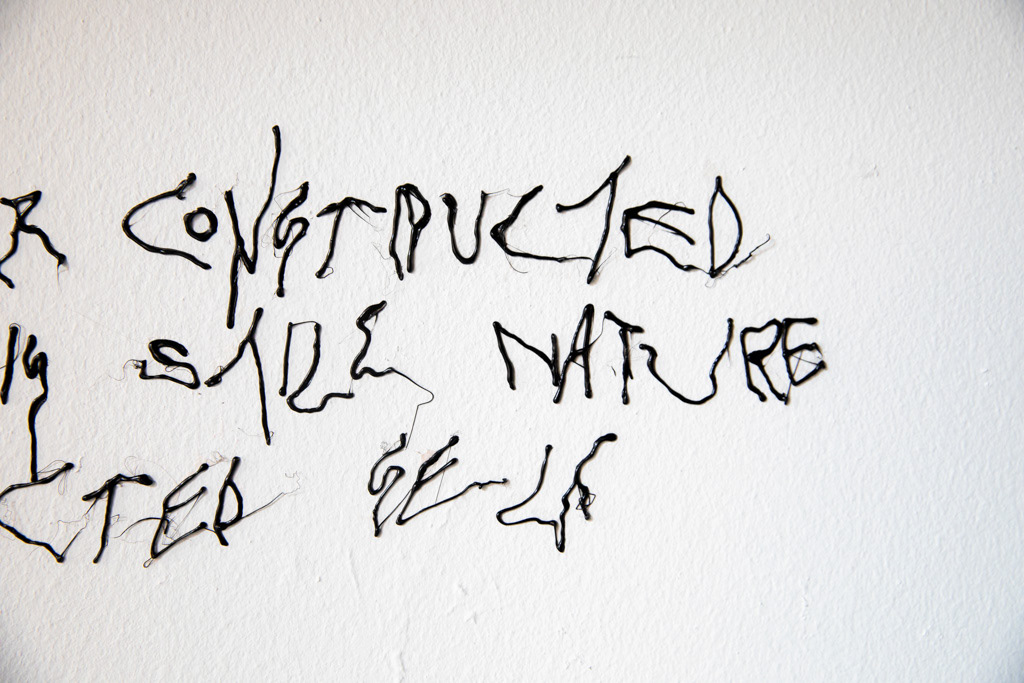 R CONSTRUCTED
SIDE NATURE
CTED SELF